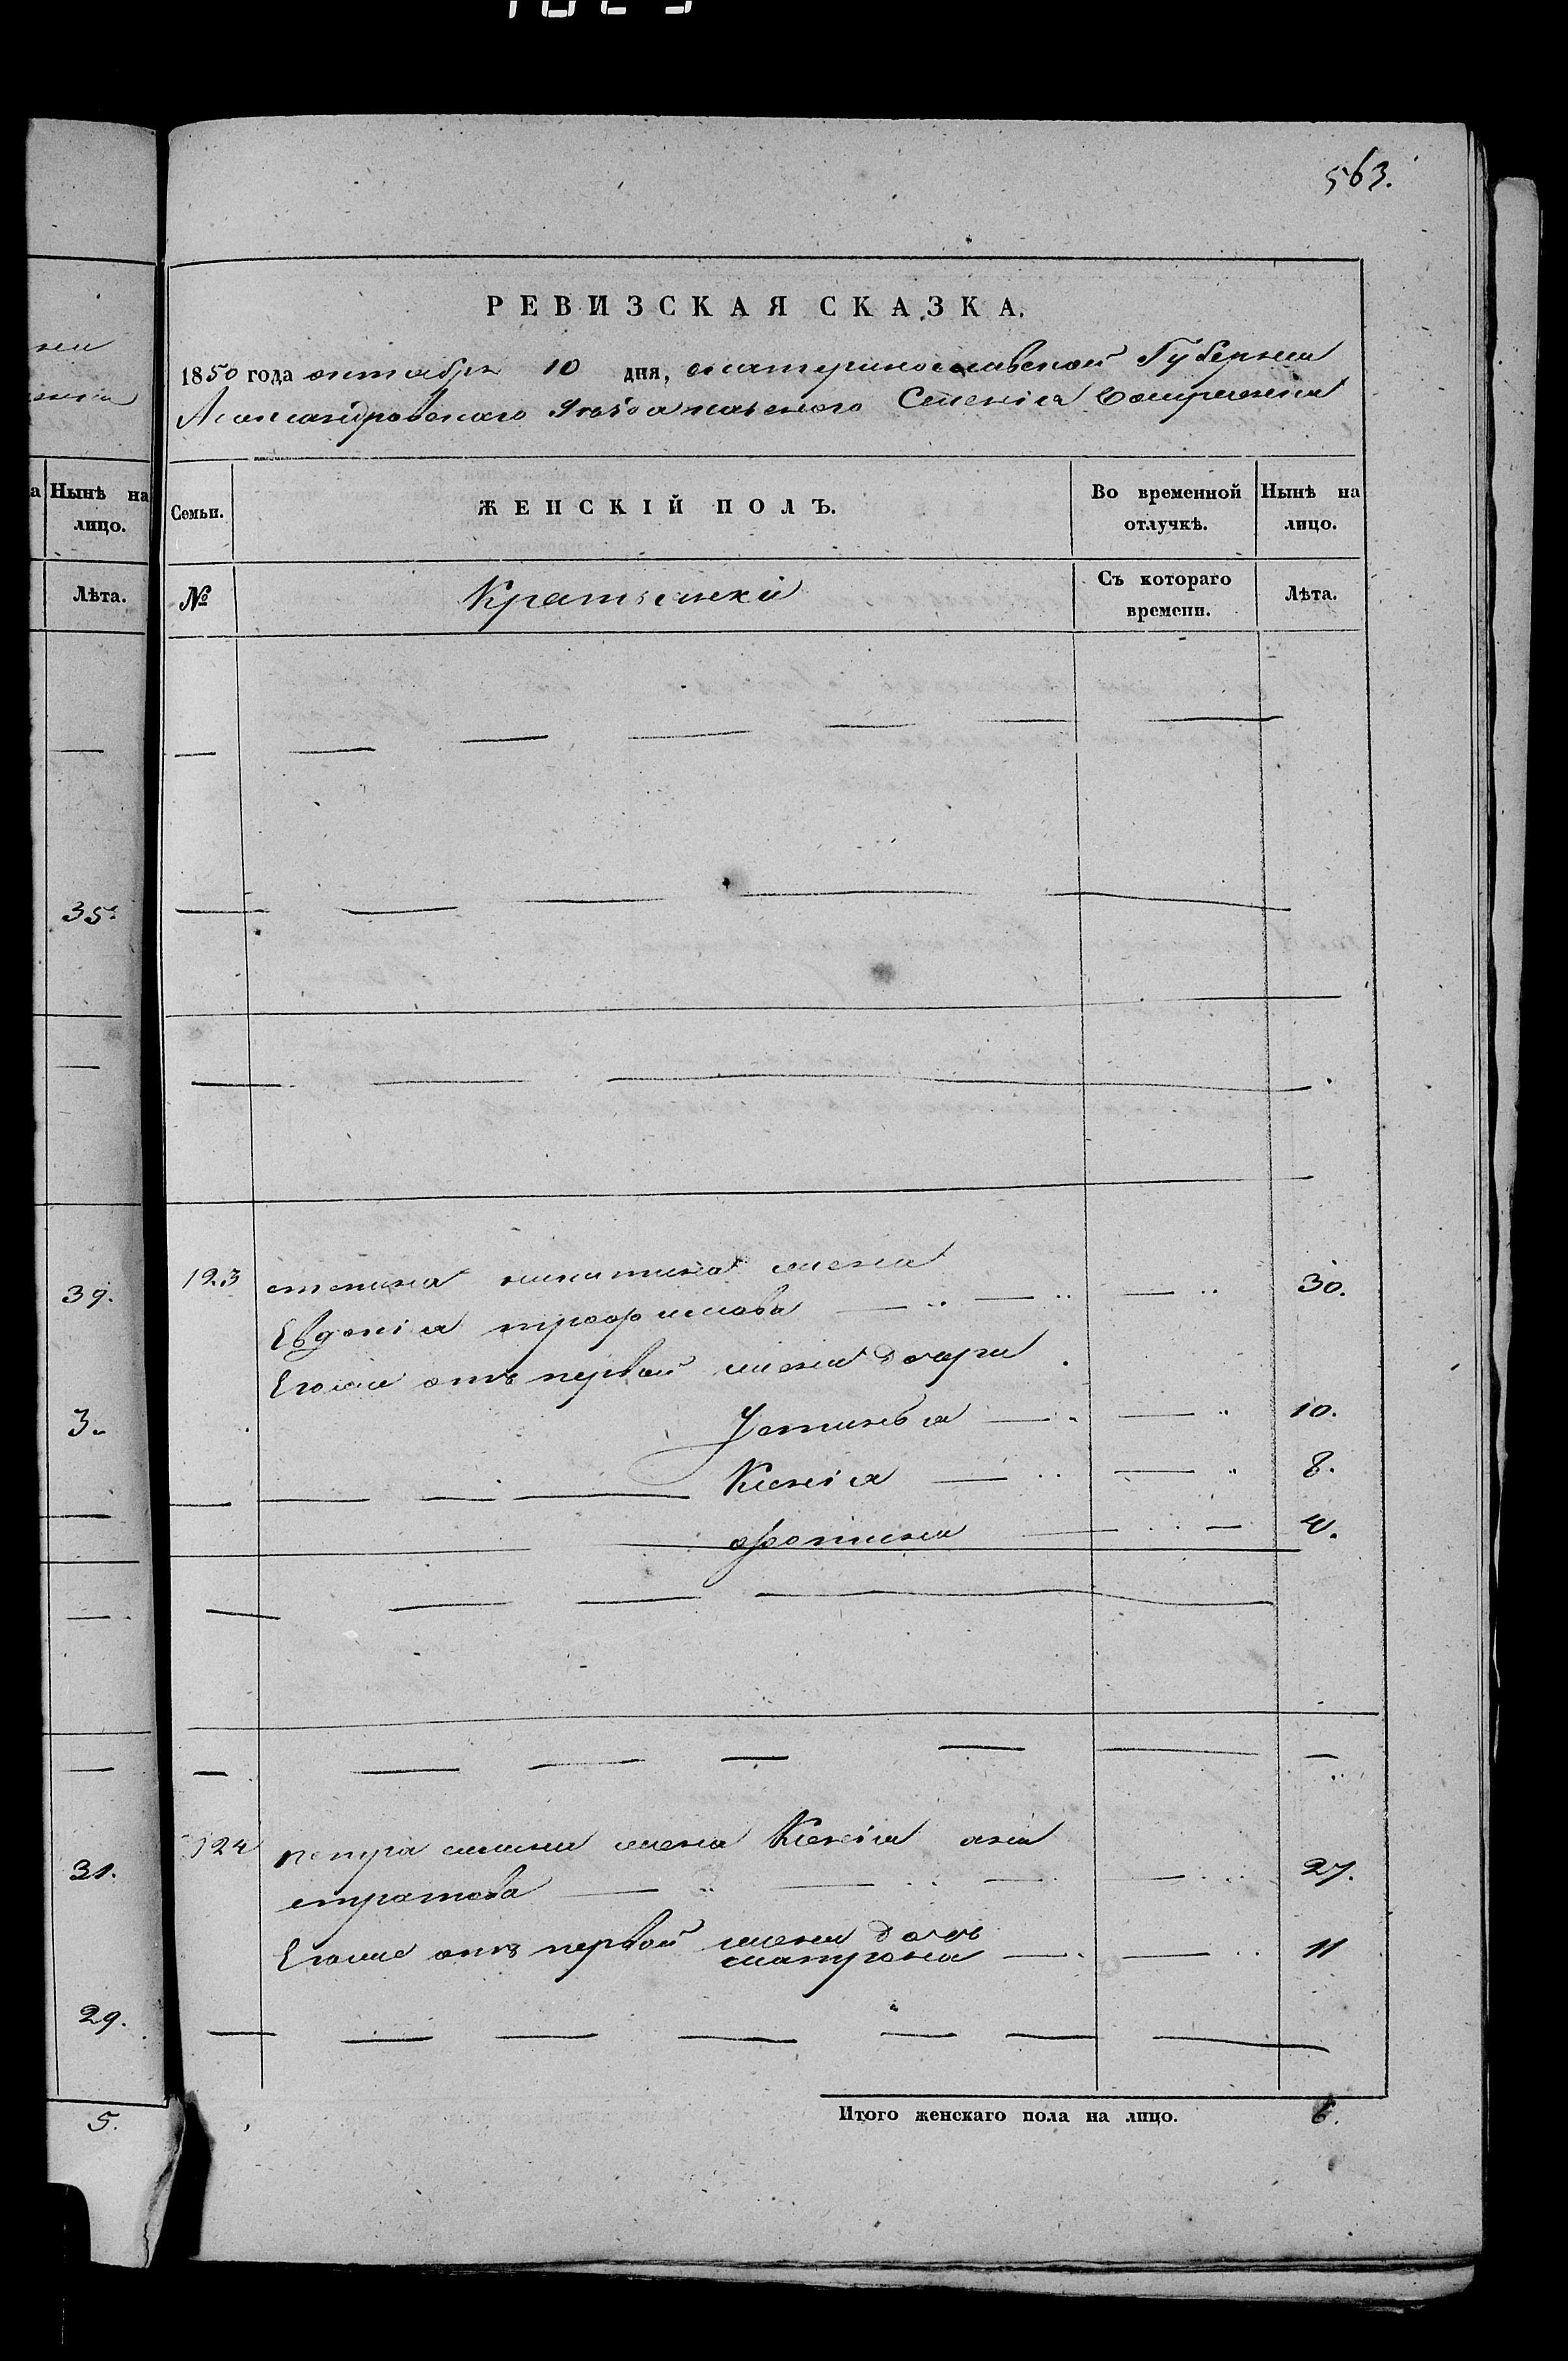 563.
РЕВИЗСКАЯ СКАЗКА.
1850 года октября 10 дня, екатеринославской Губернии
Александровского Уезда казенного Селения
Семьи.
ЖЕНСКІЙ ПОЛЪ.
Во временной отлучкѣ.
Нынѣ на лицо.
№
Крестьянки
Съ котораго времени.
Лѣта.
123 степана никитина жена
Евдокия трофимова 30.
Егоже отъ первой жены дочери
Устинья 10.
Ксенія 8.
фотина 4.
124 петра жена Ксенія ка
стратова 27.
Егоже отъ первой жены дочь
матрона 11
Итого женскаго пола на лицо. 6.
Нынѣ на
лицо.
Лѣта.
35.
39.
3.
31.
29.
5.